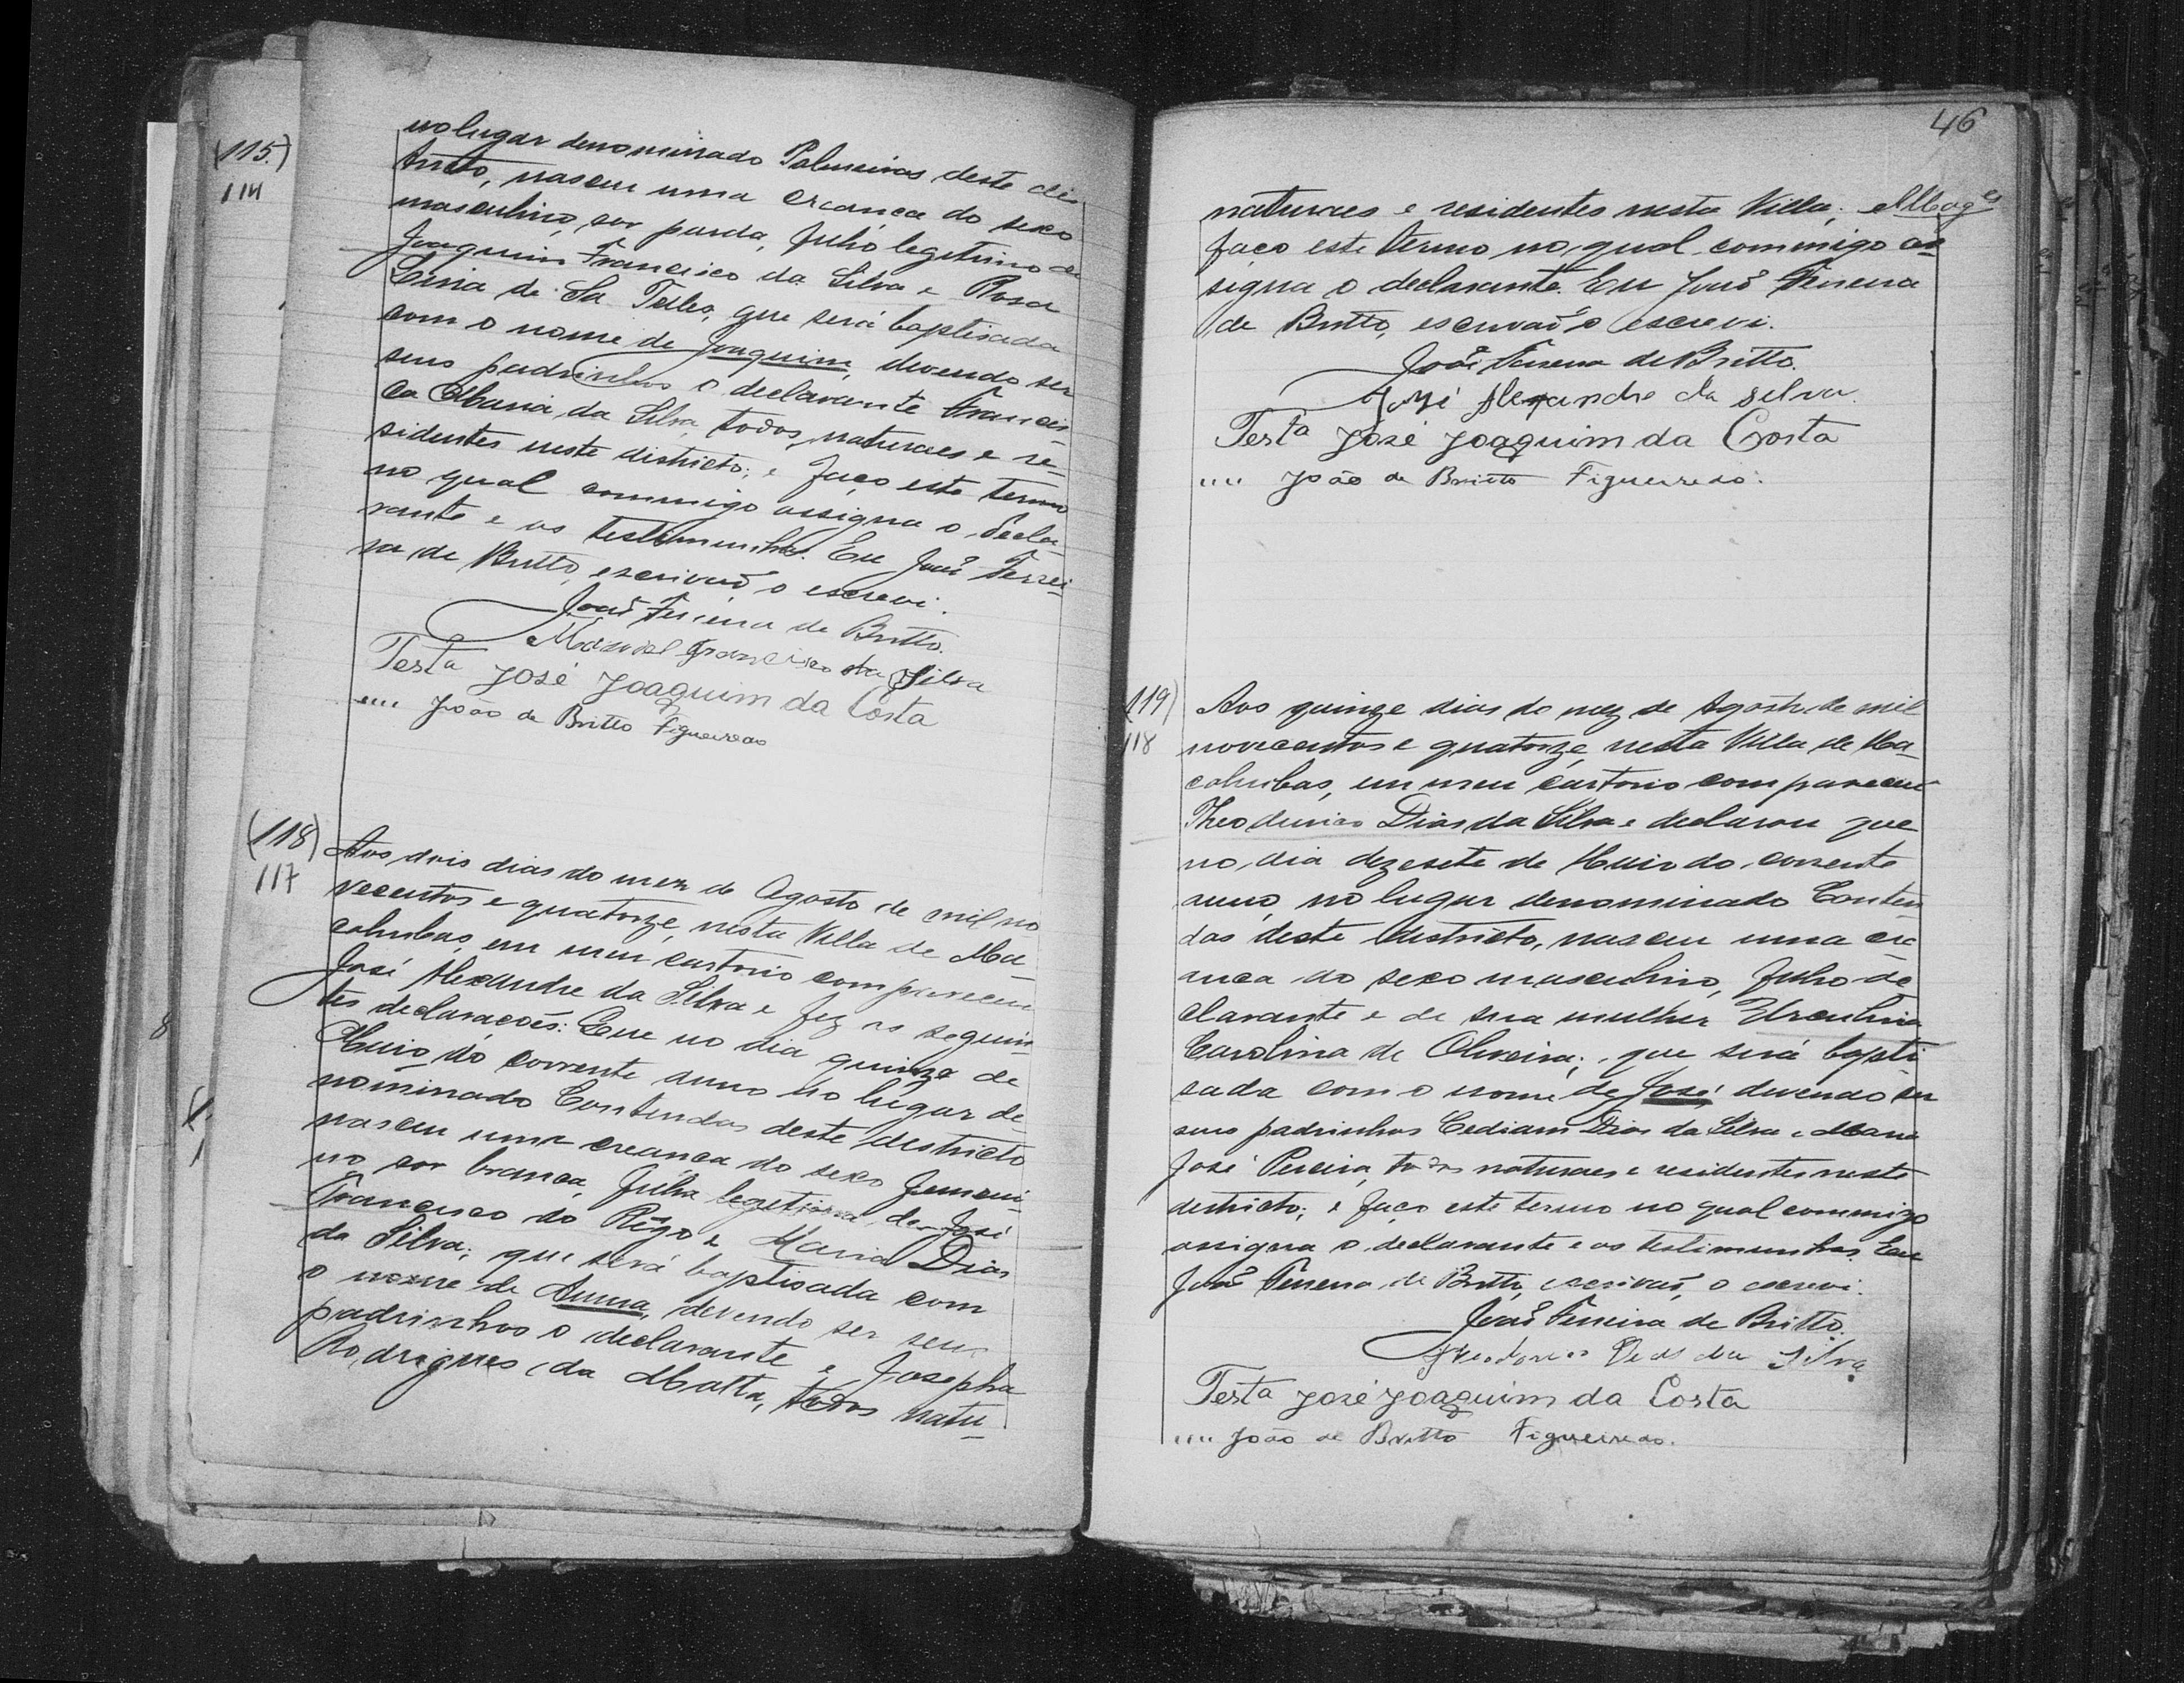 (115)
114
no lugar denominado Palmeiras deste dis
tricto, nasceu uma creança do sexo
masculino, cor parda, filho legitimo de
Joaquim Francisco da Silva e Rosa
de Sa Telles, que será baptisada
com o nome de Joaquim, devendo ser
seus padrinhos o declarante Francis
ca Maria da Silva todos naturaes e re-
sidentes neste districto; e faço este termo
no qual commigo assigna o decla-
rante e as testimunhas. Eu João Ferrei-
ra de Britto, escrivaõ o escrevi.
João Ferreira de Britto.
Manoel Francisco da Silva
Testa José Joaquim da Costa
"" João de Britto Figueiredo
(118)
117
Aos dois dias do mez de Agosto de mil no
vecentos e quatorze, nesta Villa de Ma-
cahubas, em meu cartorio compareceu
José Alexandre da Silva e fez as seguin-
tes declaracões: Que no dia quinze de
Maio do corrente anno no lugar de
nominado Contendas deste destricto
nasceu uma creanca do sexo femeni-
no cor branca, filha legetima de José
Francisco do Rêgo e Maria Dias
da Silva; que será baptisada com
o nome de Anna, devendo ser seus
padrinhos o declarante e Josepha
Rodrigues da Matta, todos natu-
46
naturaes e residentes nesta Villa;
faço este termo no qual commigo as-
signa o declarante. Eu João Ferreira
de Britto, escrivaõ o escrevi.
João Ferreira de Britto.
José Alexandre da Silva.
Testa José Joaquim da Costa
"" João de Britto Figueiredo.
(119)
118
Aos quinze dias do mez de Agosto de mil
novecentos e quatorze, nesta Villa de Ma-
cahubas, em meu cartorio compareceu
Dias da Silva e declarou que
no dia dezesete de Maio do corrente
anno, no lugar denominado Conten-
das deste destricto, nasceu uma cre
anca do sexo masculino, filho de
clarante e de sua mulher Herculina
Carolina de Oliveira; que será bapti
sada com o nome de José, devendo ser
seus padrinhos Dias da Silva e Maria
José Pereira, todos naturaes e residentes neste
destricto; e faço este termo no qual commigo
assigna o declarante e as testimunhas. Eu
João Ferreira de Britto, escrivaõ, o escrevi.
João Ferreira de Britto.
Dias da Silva
Testa José Joaquim da Costa
"" João de Britto Figueiredo.